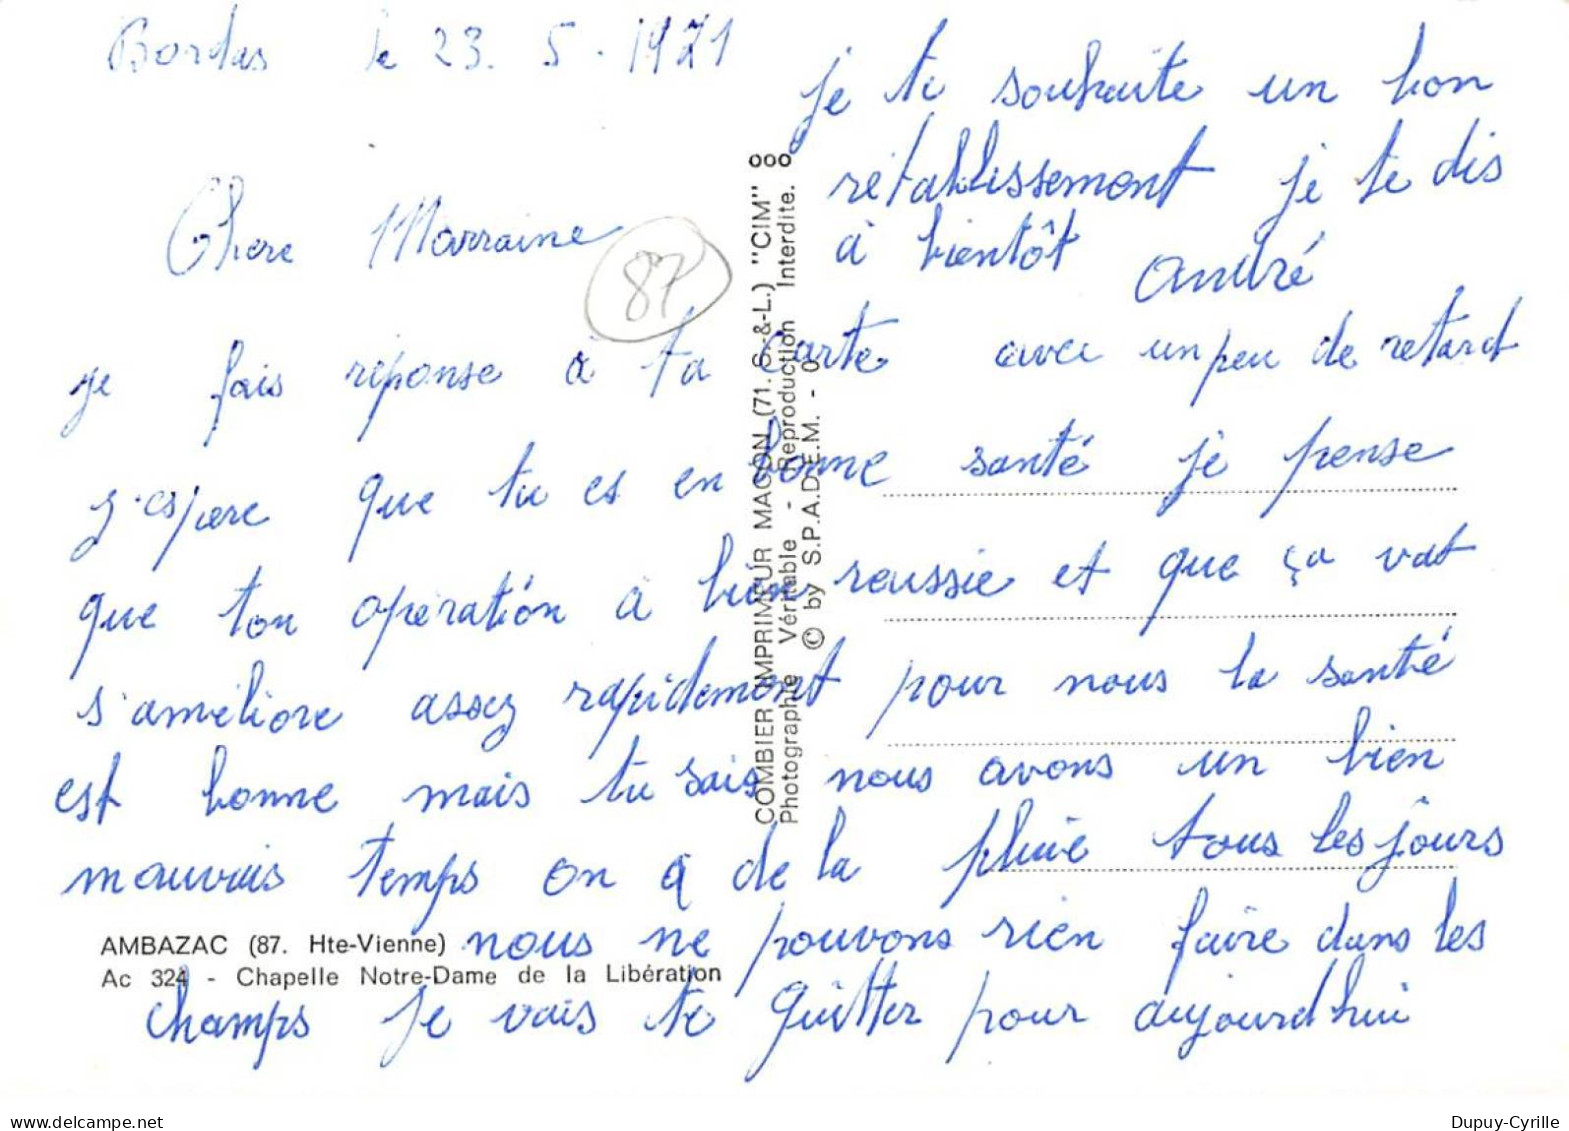 Bordas le 23. 5. 1971
Chere Marraine
87
je fais réponse a ta carte avec un peu de retard
j'espere que tu es en bonne santé je pense
que ton opération a bien reussie et que ça vat
s'améliore assez rapidement pour nous la santé
est bonne mais tu sais nous avons un bien
mauvais temps on a de la pluie tous les jours
nous ne pouvons rien faire dans les
champs je vais te quitter pour aujourd'hui
je te souhaite un bon
rétablissement je te dis
à bientôt
André
COMBIER IMPRIMEUR MACON (71. S.-&-L.) "CIM"
Photographie Véritable - Reproduction Interdite.
© by S.P.A.D.E.M. - 0
AMBAZAC (87. Hte-Vienne)
Ac 324 - Chapelle Notre-Dame de la Libération
www.delcampe.net
Dupuy-Cyrille